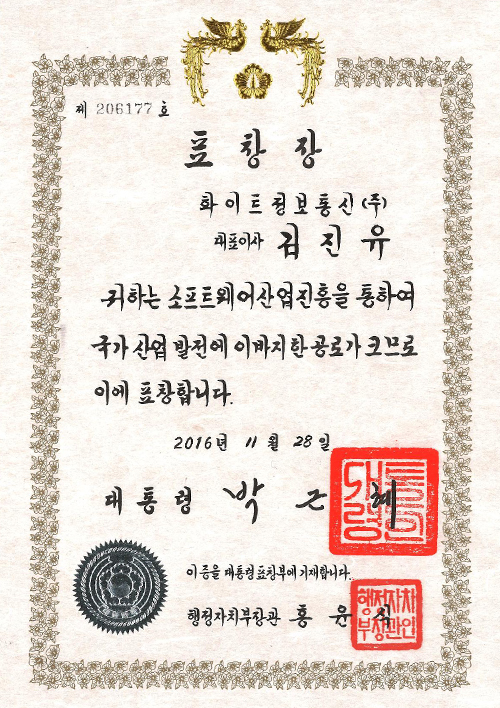 제 206177 호
표 창 장
화이트정보통신(주)
대표이사 김 진 유
귀하는 소프트웨어산업진흥을 통하여
국가 산업 발전에 이바지한 공로가 크므로
이에 표창합니다.
2016년 11 월 28 일
대 통 령 박 근 혜
대통령
이 증을 대통령 표창부에 기재합니다.
행정자치부장관 홍 윤 식
행정자치
부장관인